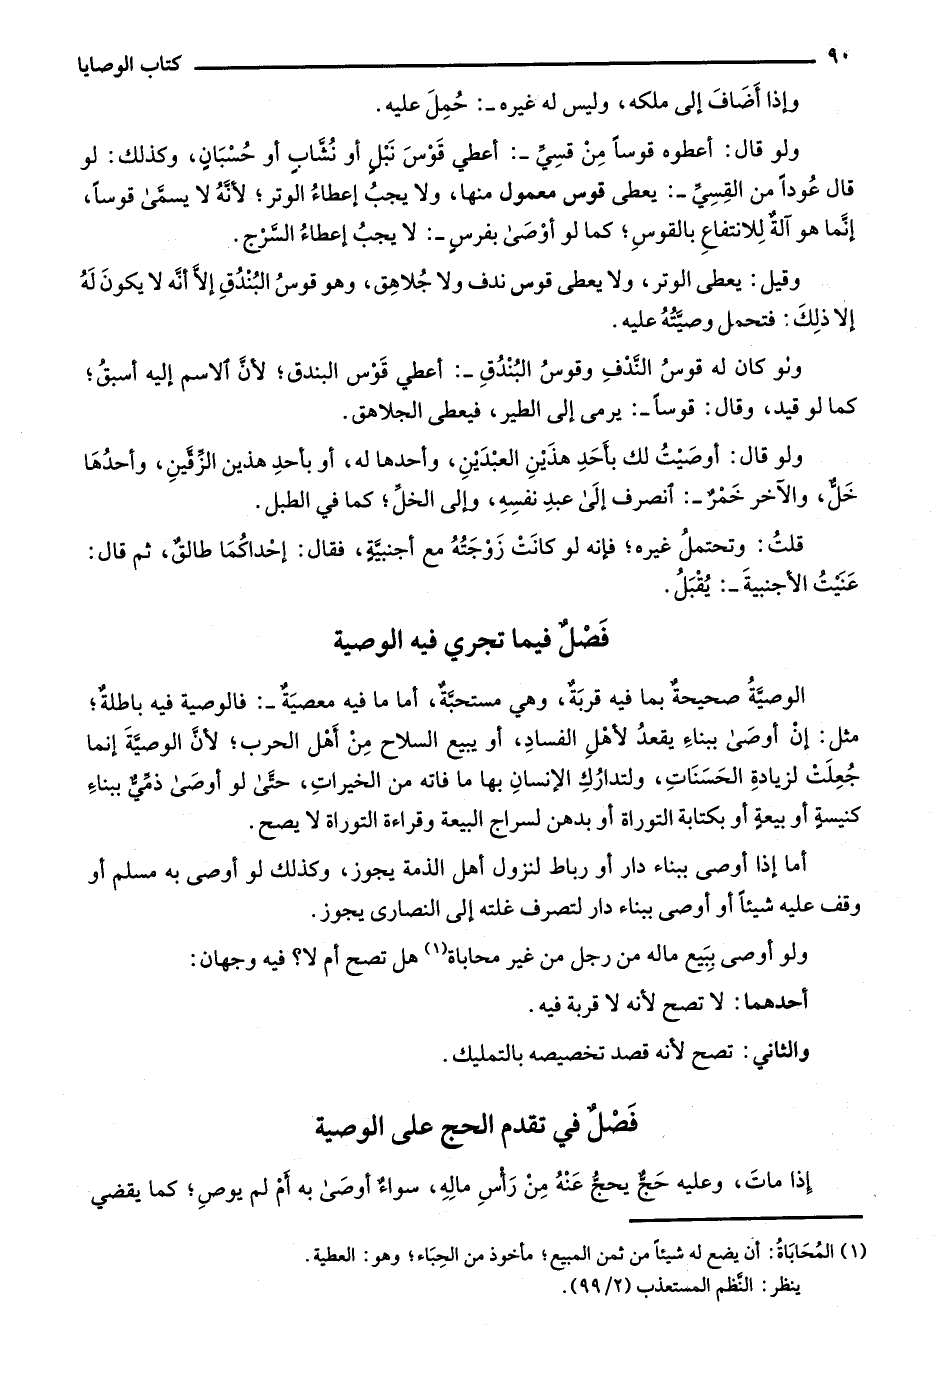 ٩٠ كتاب الوصايا
وإذا أَضَافَ إلى ملكه، وليس له غيره ـ: حُمِلَ عليه.
ولو قال: أعطوه قوساً مِنْ قسِيٍّ ـ: أعطي قَوْسَ نَبْلٍ أو نُشَّابٍ أو حُسْبَانٍ، وكذلك: لو
قال عُوداً من القِسِيِّ ـ: يعطى قوس معمول منها، ولا يجبُ إعطاءُ الوتر؛ لأنَّهُ لا يسمَّىٰ قوساً،
إنَّما هو آلةٌ لِلانتفاعِ بالقوسِ؛ كما لو أوْصَىٰ بفرسٍ ـ: لا يجبُ إعطاءُ السَّرْجِ.
وقيل: يعطى الوتر، ولا يعطى قوس ندف ولا جُلاهِق، وهو قوسُ البُنْدُقِ إلاَّ أنَّه لا يكونَ لَهُ
إلا ذلِكَ: فتحمل وصيَّتُهُ عليه.
ولو كان له قوسُ النَّدْفِ وقوسُ البُنْدُقِ ـ: أعطي قَوْس البندق؛ لأنَّ ٱلاسم إليه أسبقُ؛
كما لو قيد، وقال: قوساً ـ: يرمى إلى الطير، فيعطى الجلاهق.
ولو قال: أوصَيْتُ لك بأَحَدِ هذَيْنِ العبْدَيْنِ، وأحدها له، أو بأحدِ هذين الزِّقَّينِ، وأحدُهَا
خَلٌّ، والآخر خَمْرٌ ـ: ٱنصرف إلَىٰ عبدِ نفسِهِ، وإلى الخلِّ؛ كما في الطبل.
قلتُ: وتحتملُ غيره؛ فإنه لو كانَتْ زَوْجَتُهُ مع أجنبيَّةٍ، فقال: إحْداكُمَا طالقٌ، ثم قال:
عَنَيْتُ الأجنبيةَ ـ: يُقْبَلُ.
فَصْلٌ فيما تجري فيه الوصية
الوصيَّةُ صحيحةٌ بما فيه قربَةٌ، وهي مستحبَّةٌ، أما ما فيه معصيَةٌ ـ: فالوصية فيه باطلةٌ؛
مثل: إنْ أوصَىٰ ببناءِ يقعدُ لأهلِ الفسادِ، أو يبيع السلاح مِنْ أَهْل الحرب؛ لأنَّ الوصيَّةَ إنما
جُعِلَتْ لزيادةِ الحَسَنَاتِ، ولتدارُكِ الإنسانِ بها ما فاته من الخيراتِ، حتَّىٰ لو أوصَىٰ ذمِّيٌّ ببناءِ
كنيسةٍ أو بيعةٍ أو بكتابة التوراة أو بدهن لسراج البيعة وقراءة التوراة لا يصح.
أما إذا أوصى ببناء دار أو رباط لنزول أهل الذمة يجوز، وكذلك لو أوصى به مسلم أو
وقف عليه شيئاً أو أوصى ببناء دار لتصرف غلته إلى النصارى يجوز.
ولو أوصى بِبَيع ماله من رجل من غير محاباة(١) هل تصح أم لا؟ فيه وجهان:
أحدهما: لا تصح لأنه لا قربة فيه.
والثاني: تصح لأنه قصد تخصيصه بالتمليك.
فَصْلٌ في تقدم الحج على الوصية
إذا ماتَ، وعليه حَجٌّ يحجُّ عَنْهُ مِنْ رَأْسِ مالِهِ، سواءٌ أوصَىٰ به أمْ لم يوصِ؛ كما يقضي
(١) المُحَابَاةُ: أن يضع له شيئاً من ثمن المبيع؛ مأخوذ من الحِبَاء؛ وهو: العطية.
ينظر: النَّظم المستعذب (٩٩/٢).